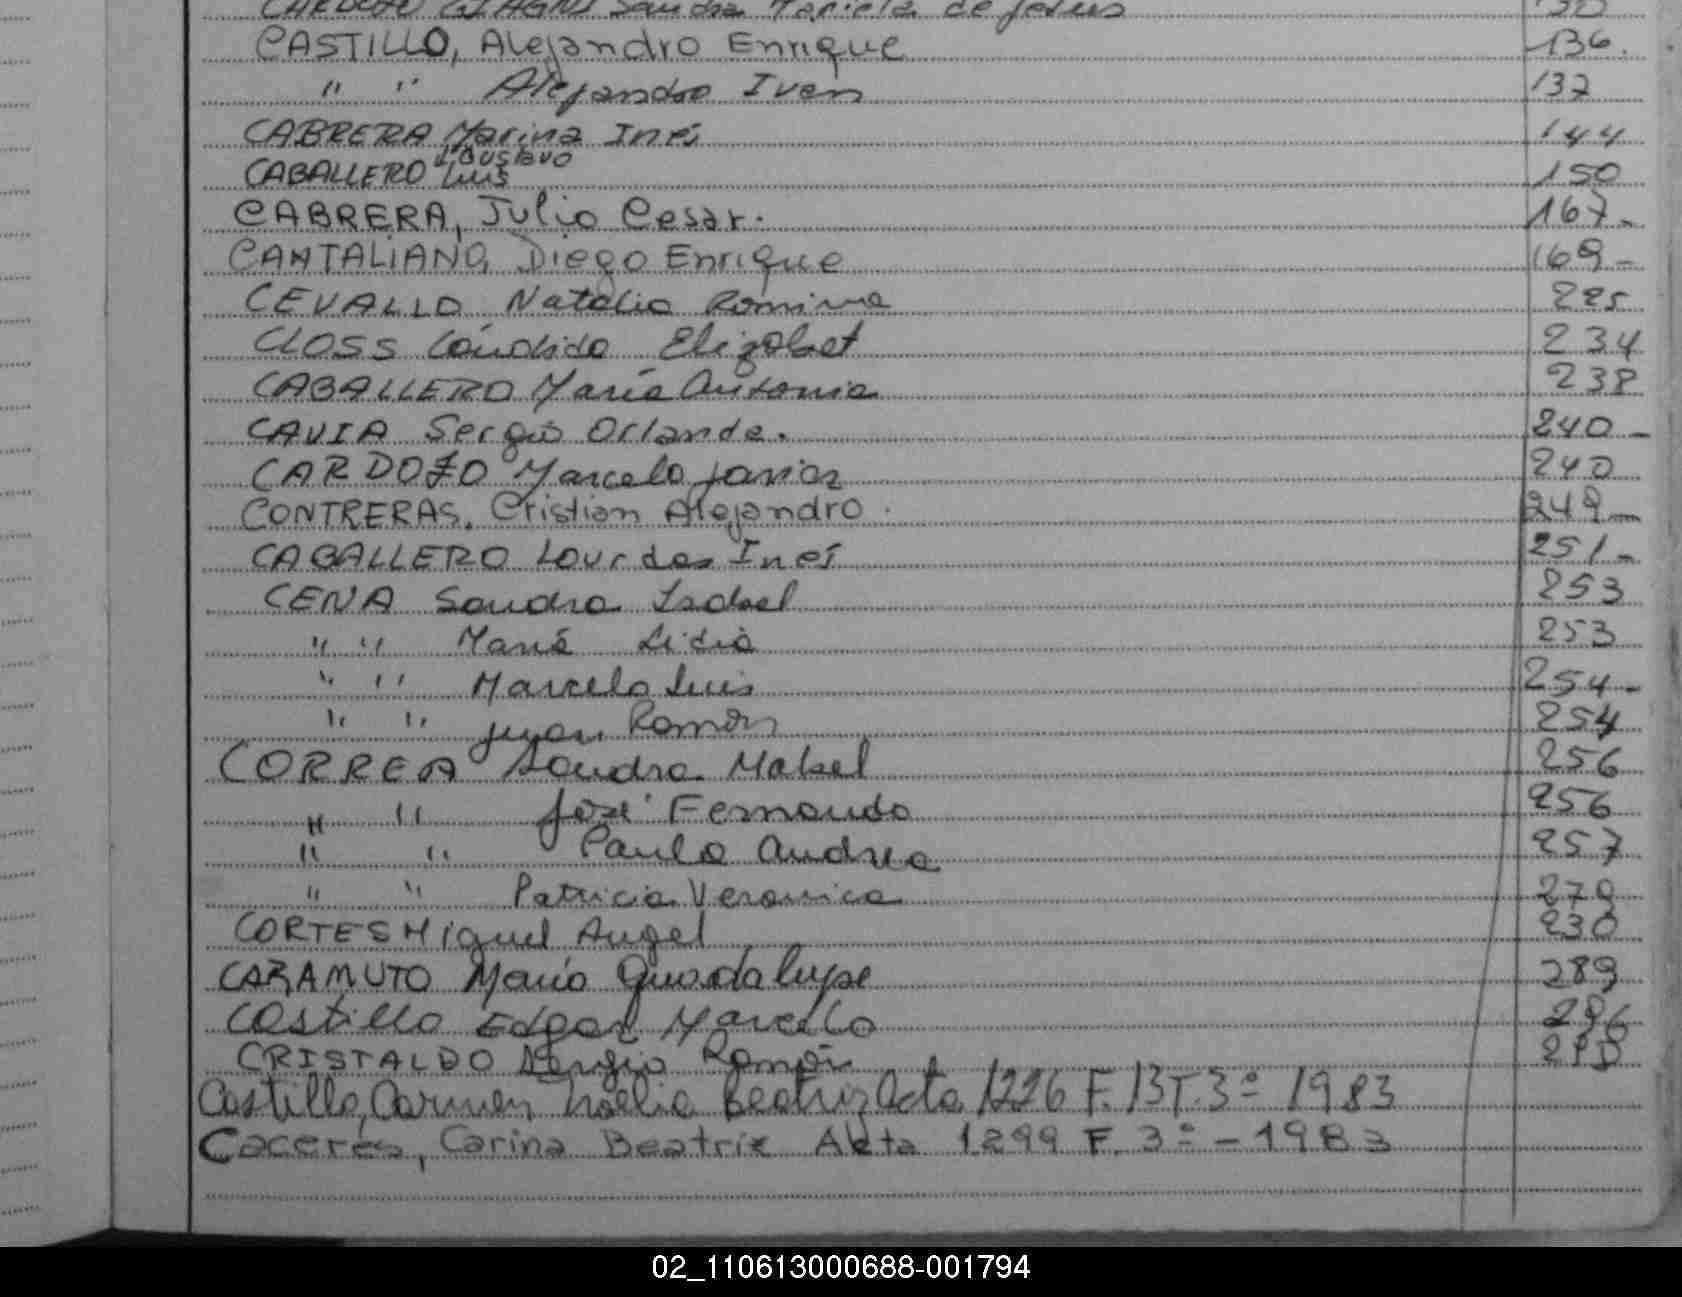 CARDOZO Sandra Mariela de Jesus
CASTILLO, Alejandro Enrique 136.
" " Alejandro Ivan 137
CABRERA Marina Inés 144
Gustavo
CABALLERO Luis 150
CABRERA, Julio Cesar. 167-
CANTALIANO, Diego Enrique 169-
CEVALLO Natalia Romina 225
CLOSS Cándida Elizabet 234
CABALLERO María Antonia 238
CAVIA Sergio Orlando. 240-
CARDOZO Marcelo Javier 240
CONTRERAS, Cristian Alejandro. 249-
CABALLERO Lourdes Inés 251-
CENA Sandra Isabel 253
" " María Lidia 253
" " Marcelo Luis 254-
" " Juan Ramón 254
CORREA Sandra Mabel 256
" " José Fernando 256
" " Paula Andrea 257
" " Patricia Veronica 279
CORTES Miguel Angel 230
CARAMUTO María Guadalupe 289
Castillo Edgar Marcelo 296
CRISTALDO Sergio Ramón
Castillo, Carmen Noelia Beatriz Acta 1226 F. 13 T. 3º 1983
Caceres, Carina Beatriz Akta 1299 F. 3º - 1983
02_110613000688-001794